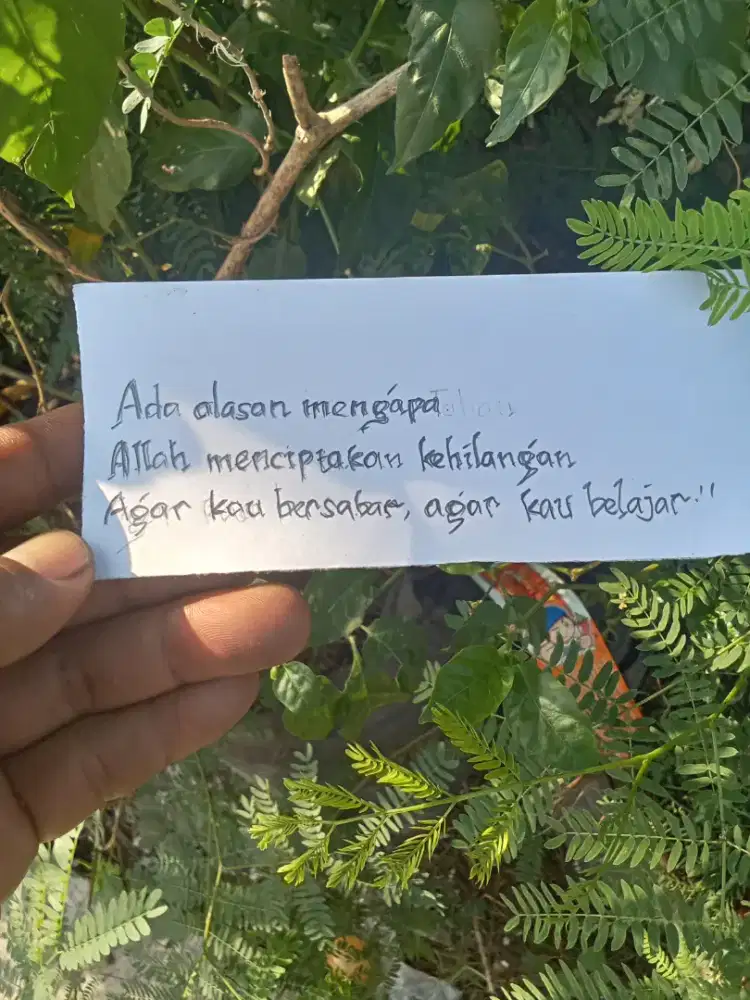 Ada alasan mengapa
Allah menciptakan kehilangan
Agar kau bersabar, agar kau belajar."